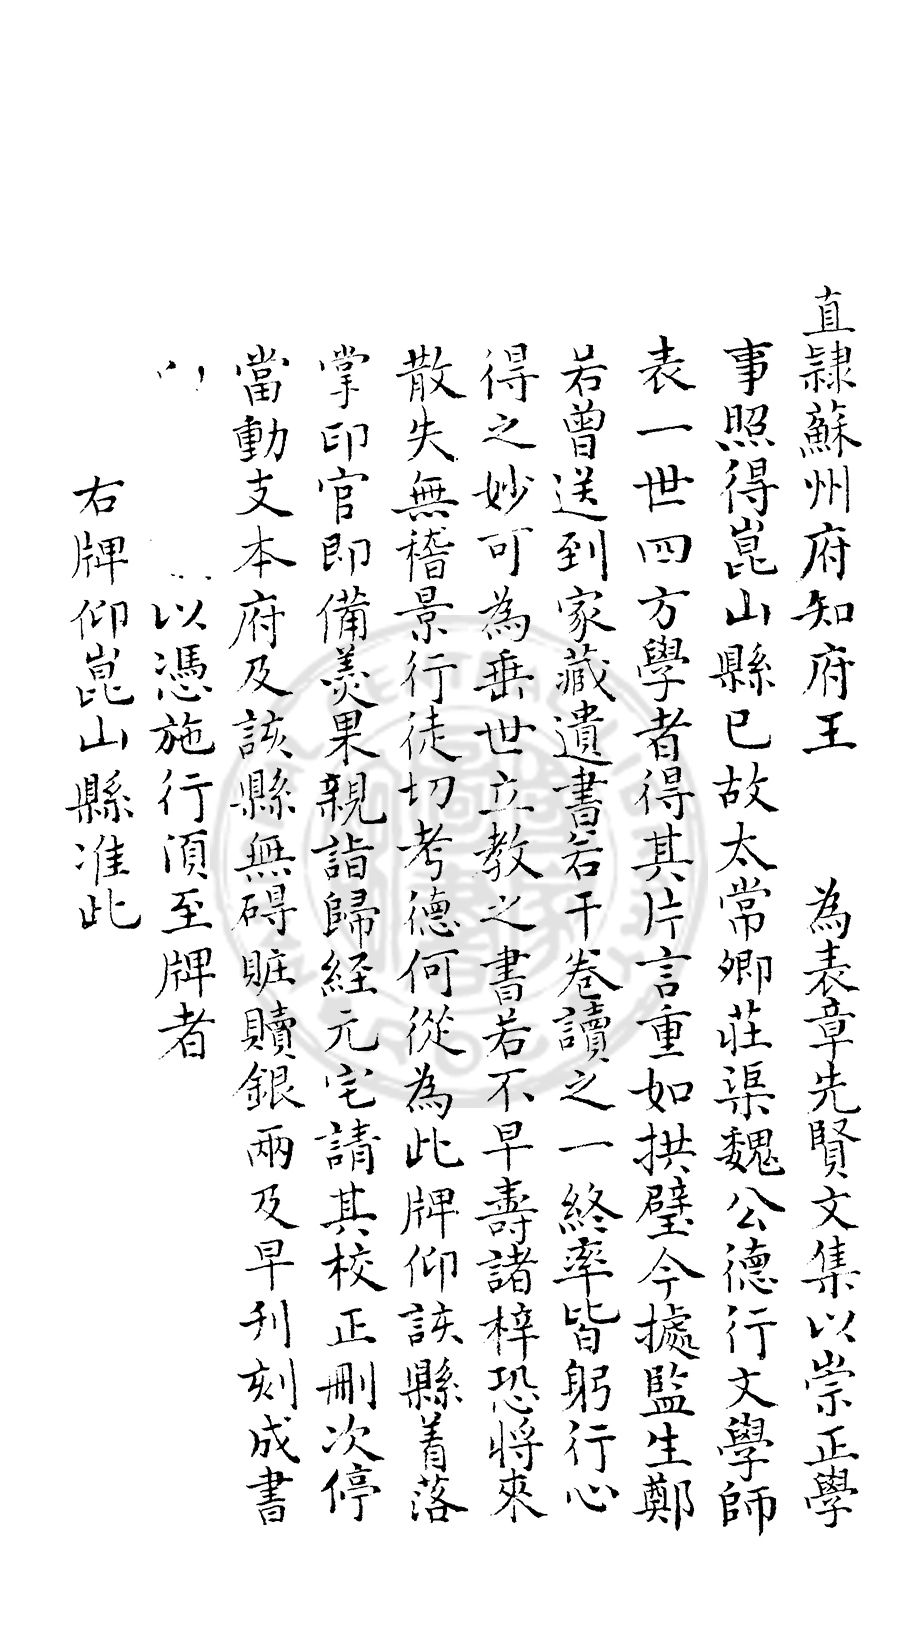 直隷蘇州府知府王　為表章先賢文集以崇正學
事照得崑山縣已故太常卿莊渠魏公德行文學師
表一世四方學者得其片言重如拱璧今據監生鄭
若曾送到家藏遺書若干卷讀之一終率皆躬行心
得之妙可為垂世立教之書若不早壽諸梓恐將來
散失無稽景行徒切考德何從為此牌仰該縣着落
掌印官即備羙果親詣歸経元宅請其校正刪次停
當動支本府及該縣無碍賍贖銀兩及早刋刻成書
以憑施行湏至牌者
右牌仰崑山縣准此